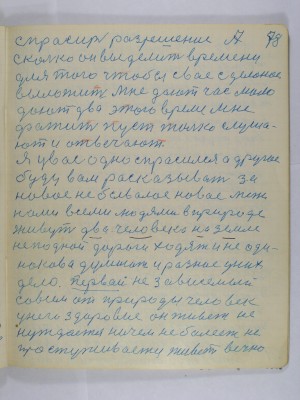 спрасил разрешение А 78
сколко он выделит времени
для того чтобы свае сделоное
выложит мне дают час мало
дают два этого време мне
фатит пуст толко слуша-
ют и отвечают.
Я увас одно спрасился а другое
буду вам расказыват за
новое небывалое новое меж
нами всеми людями в природе
живут два человека на земле
неподной дороги ходят и не оди-
нокова думают и разное уних
дело. Первай независемый
савсем от природы человек
унего здоровие он живет не
нуждается ничем неболеет не
простуживаетя живет вечно